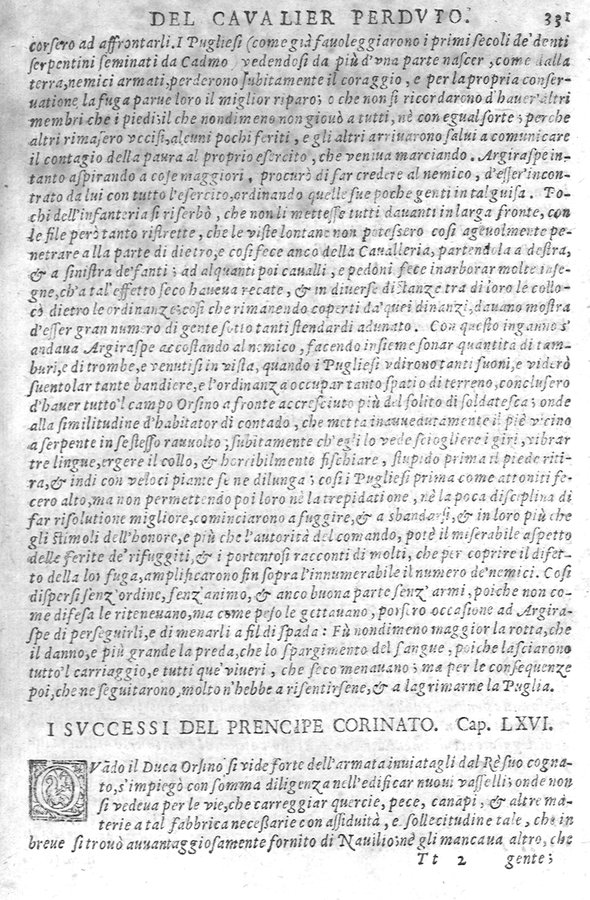 DEL CAVALIER PERDVTO. 331
corsero ad affrontarli. I Pugliesi (come già fauoleggiarono i primi secoli de' denti
serpentini seminati da Cadmo vedendosi da più d'vna parte nascer, come dalla
terra, nemici armati, perderono subitamente il coraggio, e per la propria conser-
uatione la fuga parue loro il miglior riparo; o che non si ricordarono d'hauer'altri
membri che i piedi; il che nondimeno non giouò a tutti, nè con egual sorte; perche
altri rimasero vccisi, alcuni pochi feriti, e gli altri arriuarono salui a comunicare
il contagio della paura al proprio esercito, che veniua marciando. Argiraspe in-
tanto aspirando a cose maggiori, procurò di far credere al nemico, d'esser'incon-
trato da lui con tutto l'esercito, ordinando quelle sue poche genti in tal guisa. Po-
chi dell'infanteria si riserbò, che non li mettesse tutti dauanti in larga fronte, con
le file però tanto ristrette, che le viste lontane non potessero così ageuolmente pe-
netrare alla parte di dietro, e così fece anco della Caualleria, partendola a destra,
& a sinistra de' fanti; ad alquanti poi caualli, e pedoni fece inarborar molte inse-
gne, ch'a tal'effetto seco haueua recate, & in diuerse distanze tra di loro le collo-
cò dietro le ordinanze; così che rimanendo coperti da quei dinanzi, dauano mostra
d'esser gran numero di gente sotto tanti stendardi adunato. Con questo inganno s'
andaua Argiraspe accostando al nemico, facendo insieme sonar quantità di tam-
buri, e di trombe, e venutisi in vista, quando i Pugliesi vdirono tanti suoni, e viderò
suentolar tante bandiere, e l'ordinanza occupar tanto spatio di terreno, conclusero
d'hauer tutto'l campo Orsino a fronte accresciuto più del solito di soldatesca; onde
alla similitudine d'habitator di contado, che metta inauuedutamente il piè vicino
a serpente in se stesso rauuolto; subitamente ch'egli lo vede sciogliere i giri, vibrar
tre lingue, ergere il collo, & horribilmente fischiare, stupido prima il piede riti-
ra, & indi con veloci piante se ne dilunga; così i Pugliesi prima come attoniti fe-
cero alto, ma non permettendo poi loro nè la trepidatione, nè la poca disciplina di
far risolutione migliore, cominciarono a fuggire, & a sbandarsi, & in loro più che
gli stimoli dell'honore, e più che l'autorità del comando, potè il miserabile aspetto
delle ferite de' rifuggiti, & i portentosi racconti di molti, che per coprire il difet-
to della loi fuga, amplificarono fin sopra l'innumerabile il numero de' nemici. Così
dispersi senz'ordine, senz'animo, & anco buona parte senz'armi, poiche non co-
me difesa le riteneuano, ma come peso le gettauano, porsero occasione ad Argira-
spe di perseguirli, e di menarli a fil di spada: Fù nondimeno maggior la rotta, che
il danno, e più grande la preda, che lo spargimento del sangue, poiche lasciarono
tutto'l carriaggio, e tutti que' viueri, che seco menauano; ma per le conseguenze
poi, che ne seguitarono, molto n'hebbe a risentirsene, & a lagrimarne la Puglia.
I SVCCESSI DEL PRENCIPE CORINATO. Cap. LXVI.
QVādo il Duca Orsino si vide forte dell'armata inuiatagli dal Rè suo cogna-
to, s'impiegò con somma diligenza nell'edificar nuoui vasselli; onde non
si vedeua per le vie, che carreggiar quercie, pece, canapi, & altre ma-
terie a tal fabbrica necessarie con assiduità, e sollecitudine tale, che in
breue si trouò auuantaggiosamente fornito di Nauilio; nè gli mancaua altro, che
Tt 2 gente;